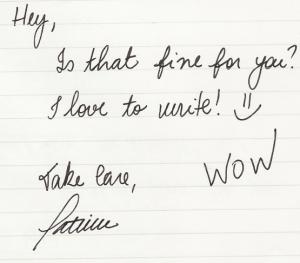 Hey,
Is that fine for you?
I love to write! =)
Take Care,
WOW
Patricia